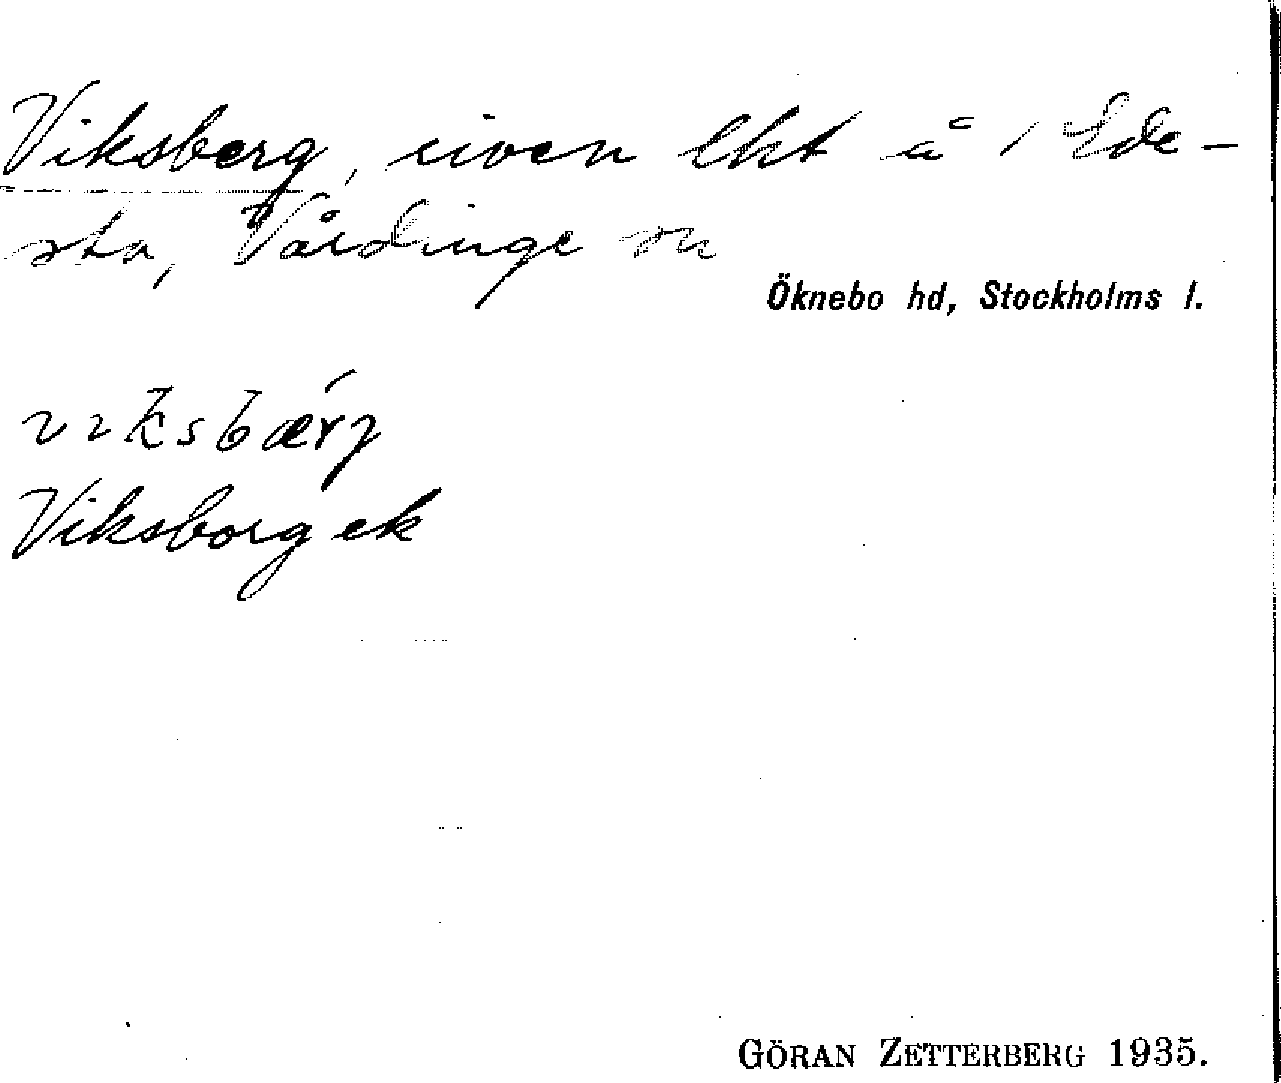 Viksberg, även lht å 1 Ede-
sta, Vårdinge sn
Öknebo hd, Stockholms l.
Viksborg ek
GÖRAN ZETTERBERG 1935.